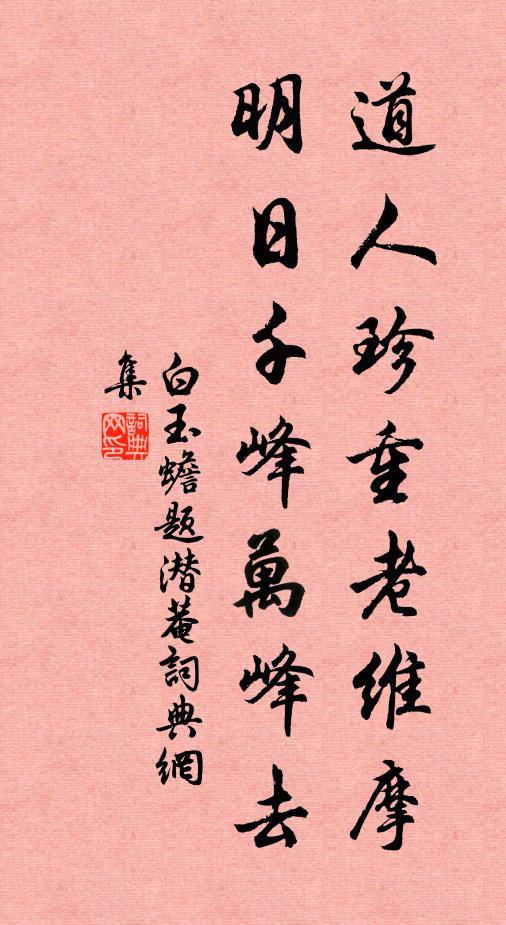 道人珍重老維摩
明日千峰萬峰去
白玉蟾题潜菴詞典網
集
詞典網印